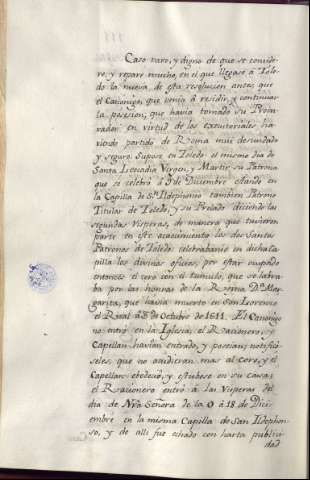 Caso raro, y digno de que se conside-
re, y repare mucho, en el que llegase à Tole-
do la nueva de esta resolucion antes que
el Canonigo, que venia à residir, y continuar
la posesion, que havia tomado su Procu-
rador en virtud de los executoriales ha-
viendo partido de Roma mui descuidado
y seguro. Supose en Toledo el mismo dia de
Santa Leocadia Virgen, y Martir su Patrona
que se celebra à 9 de Diciembre estando en
la Capilla de Sn. Ildephonso tambien Patrono
Titular de Toledo, y su Prelado diciendo las
segundas Visperas, de manera que tuvieron
parte en este acaecimiento los dos Santos
Patronos de Toledo celebrabanse en dicha Ca-
pilla los divinos oficios, por estar ocupado
entonces el coro con el tumulo, que se labra-
ba por las honras de la Reyna Da. Mar-
garita, que havia muerto en San Lorenzo
el Real à 3 de Octubre de 1611. El Canonigo
no entró en la Iglesia; el Racionero, y
Capellan havian entrado, y poseian; notificó-
seles, que no acudieran mas al coro, y el
Capellan obedeció, y estubose en su casa;
el Racionero entró à las Visperas del
dia de Nra. Señora de la O à 18 de Dici-
embre en la misma Capilla de San Ildephon-
so, y de alli fue echado con harta publici-
dad